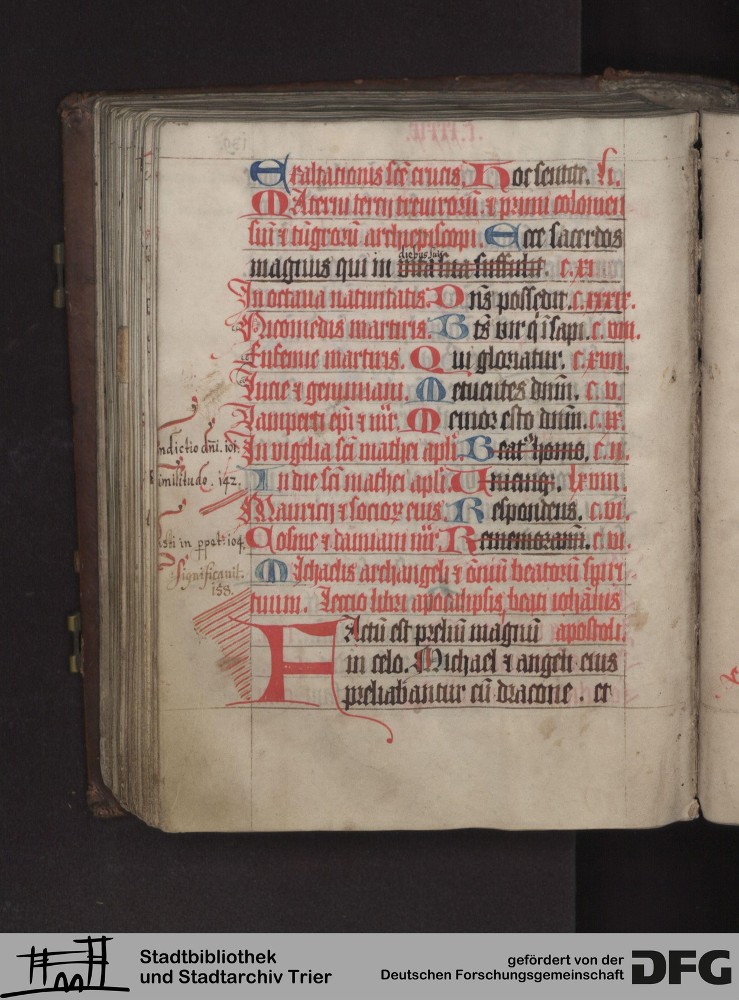 Exaltationis scē crucis. Hoc sentite. li.
MAterni terey treuirorū & primi colonien
siū & tūgrorū archiepiscopi. Ecce sacerdos
diebus suis
magnus qui in vita sua suffulsit. c. xi
In octava natiuitatis. Dns possedit. c. xxxix.
Nicomedis martiris. Bts vir q i sapi. c. viii.
Eufemie martiris. Qui gloriatur. c. xvii.
Lucie & geminiani. Metuentes dnm. c. vi.
Lamperti epi & mr. Memor esto dnm. c. ix.
In vigilia sci mathei apli. Beat9 homo. c. ii.
In die sci mathei apli. lxviii.
Mauricij & socior eius. Respondens. c. vi.
Cosme & damiani mr. Rememorami. c. vi.
MIchaelis archangeli & oīm beatorū spiri
tuum. Leccio libri apocalipsis, beati iohānis
FActū est preliū magnū apostoli.
in celo. Michael & angeli eius
preliabantur cū dracone. et
ndictio dni. 101.
imilitudo. 142.
in ppet. 104.
Significauit.
158.
Stadtbibliothek
und Stadtarchiv Trier
gefördert von der
Deutschen Forschungsgemeinschaft
DFG